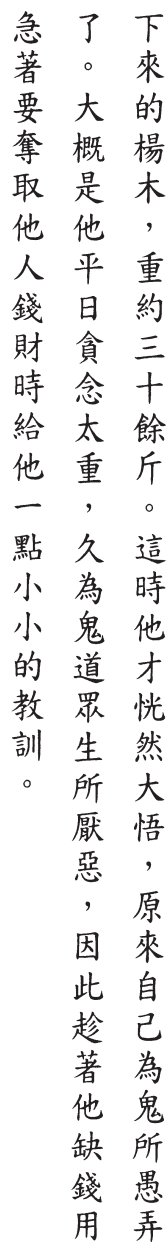 下來的楊木，重約三十餘斤。這時他才恍然大悟，原來自己為鬼所愚弄
了。大概是他平日貪念太重，久為鬼道眾生所厭惡，因此趁著他缺錢用
急著要奪取他人錢財時給他一點小小的教訓。